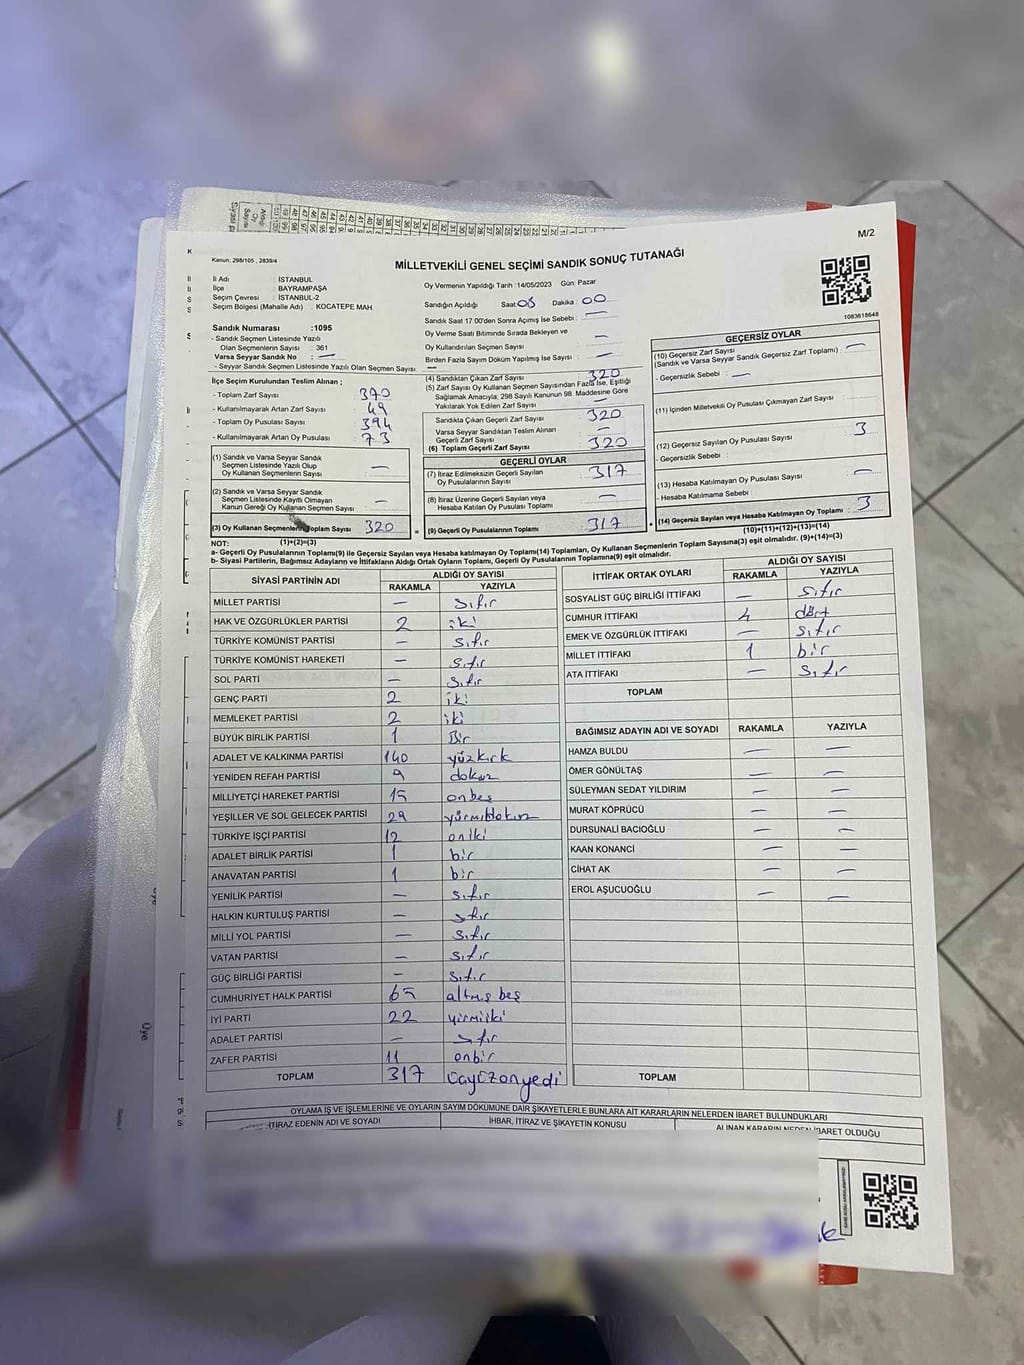 M/2
Kanun, 298/105 , 2839/4
MİLLETVEKİLİ GENEL SEÇİMİ SANDIK SONUÇ TUTANAĞI
1083618648
İli Adı : İSTANBUL
İlçe : BAYRAMPAŞA
Seçim Çevresi : İSTANBUL-2
Seçim Bölgesi (Mahalle Adı) : KOCATEPE MAH
Sandık Numarası :1095
- Sandık Seçmen Listesinde Yazılı
Olan Seçmenlerin Sayısı : 361
Varsa Seyyar Sandık No : —
- Seyyar Sandık Seçmen Listesinde Yazılı Olan Seçmen Sayısı: —
İlçe Seçim Kurulundan Teslim Alınan ;
- Toplam Zarf Sayısı 370
- Kullanılmayarak Artan Zarf Sayısı 49
- Toplam Oy Pusulası Sayısı 394
- Kullanılmayarak Artan Oy Pusulası 73
(1) Sandık ve Varsa Seyyar Sandık
Seçmen Listesinde Yazılı Olup
Oy Kullanan Seçmenlerin Sayısı —
(2) Sandık ve Varsa Seyyar Sandık
Seçmen Listesinde Kayıtlı Olmayan
Kanun Gereği Oy Kullanan Seçmen Sayısı —
(3) Oy Kullanan Seçmenlerin Toplam Sayısı 320
(1)+(2)=(3)
Oy Vermenin Yapıldığı Tarih :14/05/2023 Gün: Pazar
Sandığın Açıldığı Saat 08 Dakika : 00
Sandık Saat 17:00'den Sonra Açılmış İse Sebebi : —
Oy Verme Saati Bitiminde Sırada Bekleyen ve
Oy Kullandırılan Seçmen Sayısı —
Birden Fazla Sayım Döküm Yapılmış İse Sayısı —
(4) Sandıktan Çıkan Zarf Sayısı 320
(5) Zarf Sayısı Oy Kullanan Seçmen Sayısından Fazla İse, Eşitliği
Sağlamak Amacıyla, 298 Sayılı Kanunun 98. Maddesine Göre
Yakılarak Yok Edilen Zarf Sayısı —
Sandıkta Çıkan Geçerli Zarf Sayısı 320
Varsa Seyyar Sandıktan Teslim Alınan
Geçerli Zarf Sayısı —
(6) Toplam Geçerli Zarf Sayısı 320
GEÇERLİ OYLAR
(7) İtiraz Edilmeksizin Geçerli Sayılan
Oy Pusulalarının Sayısı 317
(8) İtiraz Üzerine Geçerli Sayılan veya
Hesaba Katılan Oy Pusulası Toplamı —
= (9) Geçerli Oy Pusulalarının Toplamı : 317 +
GEÇERSİZ OYLAR
(10) Geçersiz Zarf Sayısı
(Sandık ve Varsa Seyyar Sandık Geçersiz Zarf Toplamı) : —
- Geçersizlik Sebebi : —
(11) İçinden Milletvekili Oy Pusulası Çıkmayan Zarf Sayısı :
(12) Geçersiz Sayılan Oy Pusulası Sayısı 3
- Geçersizlik Sebebi :
(13) Hesaba Katılmayan Oy Pusulası Sayısı —
- Hesaba Katılmama Sebebi :
(14) Geçersiz Sayılan veya Hesaba Katılmayan Oy Toplamı : 3
(10)+(11)+(12)+(13)=(14)
NOT:
a- Geçerli Oy Pusulalarının Toplamı(9) ile Geçersiz Sayılan veya Hesaba katılmayan Oy Toplamı(14) Toplamları, Oy Kullanan Seçmenlerin Toplam Sayısına(3) eşit olmalıdır. (9)+(14)=(3)
b- Siyasi Partilerin, Bağımsız Adayların ve İttifakların Aldığı Ortak Oyların Toplamı, Geçerli Oy Pusulalarının Toplamına(9) eşit olmalıdır.
SİYASİ PARTİNİN ADI ALDIĞI OY SAYISI
RAKAMLA YAZIYLA
MİLLET PARTİSİ — sıfır
HAK VE ÖZGÜRLÜKLER PARTİSİ 2 iki
TÜRKİYE KOMÜNİST PARTİSİ — sıfır
TÜRKİYE KOMÜNİST HAREKETİ — sıfır
SOL PARTİ — sıfır
GENÇ PARTİ 2 iki
MEMLEKET PARTİSİ 2 iki
BÜYÜK BİRLİK PARTİSİ 1 Bir
ADALET VE KALKINMA PARTİSİ 140 yüzkırk
YENİDEN REFAH PARTİSİ 9 dokuz
MİLLİYETÇİ HAREKET PARTİSİ 15 onbeş
YEŞİLLER VE SOL GELECEK PARTİSİ 29 yirmidokuz
TÜRKİYE İŞÇİ PARTİSİ 12 oniki
ADALET BİRLİK PARTİSİ 1 bir
ANAVATAN PARTİSİ 1 bir
YENİLİK PARTİSİ — sıfır
HALKIN KURTULUŞ PARTİSİ — sıfır
MİLLİ YOL PARTİSİ — sıfır
VATAN PARTİSİ — sıfır
GÜÇ BİRLİĞİ PARTİSİ — sıfır
CUMHURİYET HALK PARTİSİ 65 altmış beş
İYİ PARTİ 22 yirmiiki
ADALET PARTİSİ — sıfır
ZAFER PARTİSİ 11 onbir
TOPLAM 317 üçyüzonyedi
İTTİFAK ORTAK OYLARI ALDIĞI OY SAYISI
RAKAMLA YAZIYLA
SOSYALİST GÜÇ BİRLİĞİ İTTİFAKI — sıfır
CUMHUR İTTİFAKI 4 dört
EMEK VE ÖZGÜRLÜK İTTİFAKI — sıfır
MİLLET İTTİFAKI 1 bir
ATA İTTİFAKI — sıfır
TOPLAM
BAĞIMSIZ ADAYIN ADI VE SOYADI RAKAMLA YAZIYLA
HAMZA BULDU — —
ÖMER GÖNÜLTAŞ — —
SÜLEYMAN SEDAT YILDIRIM — —
MURAT KÖPRÜCÜ — —
DURSUNALİ BACIOĞLU — —
KAAN KONANCİ — —
CİHAT AK — —
EROL AŞUCUOĞLU — —
TOPLAM
OYLAMA İŞ VE İŞLEMLERİNE VE OYLARIN SAYIM DÖKÜMÜNE DAİR ŞİKAYETLERLE BUNLARA AİT KARARLARIN NELERDEN İBARET BULUNDUKLARI
İTİRAZ EDENİN ADI VE SOYADI İHBAR, İTİRAZ VE ŞİKAYETİN KONUSU ALINAN KARARIN NEDEN İBARET OLDUĞU